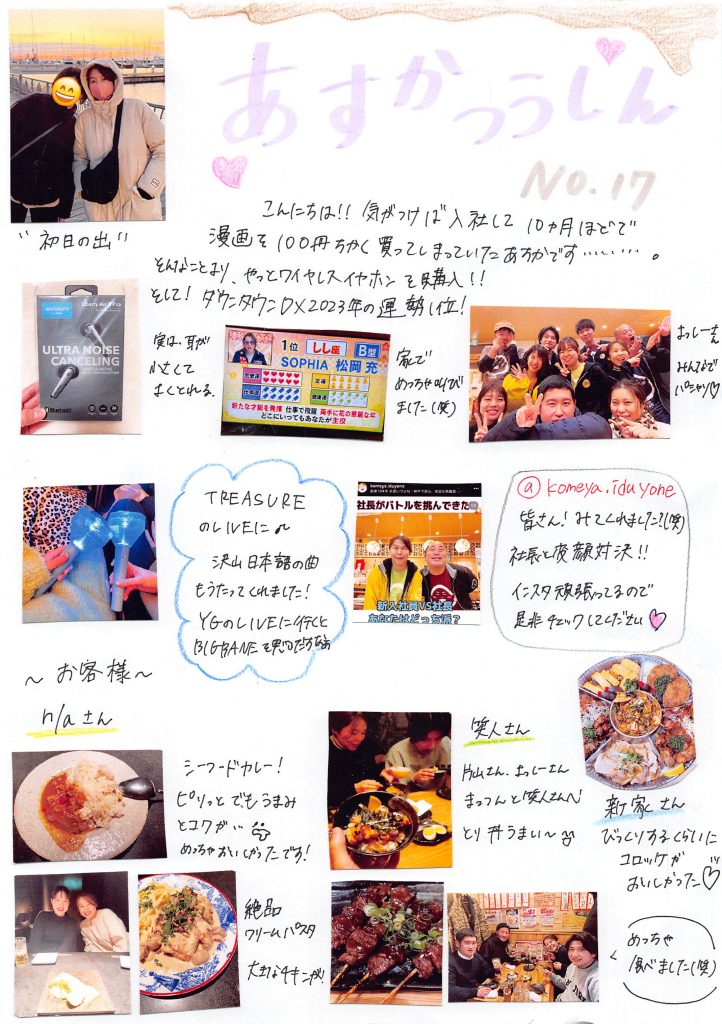 あすかつうしん
No.17
こんにちは!! 気がつけば入社して10ヵ月ほどで
漫画を100冊ちかく買ってしまっていたあすかです………。
そんなことより、やっとワイヤレスイヤホンを購入!!
そして! ダウンタウンDX2023年の運勢1位!
"初日の出"
soundcore
Liberty Air 2 Pro
ULTRA NOISE
CANCELING
Bluetooth
実は、耳が
小さくて
よくとれる。
1位 しし座 B型
SOPHIA 松岡 充
恋愛運
金運
仕事運
健康運
新たな才能を発揮 仕事で飛躍 両手に花の華麗な年
どこにいつでもあなたが主役
家で
めっちゃ叫び
ました(笑)
まっしーさん
みんなで
パシャリ♡
TREASURE
のLIVEに♫
沢山日本語の曲
もうたってくれました!
YGのLIVEに行くと
komeya.iduyone
社長がバトルを挑んできた
新入社員VS社長
あなたはどっち派?
@komeya.iduyone
皆さん!みてくれました?(笑)
社長と変顔対決!!
インスタ頑張ってるので
是非チェックしてください♡
~お客様~
n/aさん
シーフードカレー!
ピリッとでもうまみ
とコクが…
めっちゃおいしかったです!
絶品
クリームパスタ
大きなチキンが!
笑人さん
片山さん、まっしーさん
まっつんと笑人さんへ
とり丼うまい~
新家さん
びっくりするくらいに
コロッケが
おいしかった♡
めっちゃ
食べました(笑)